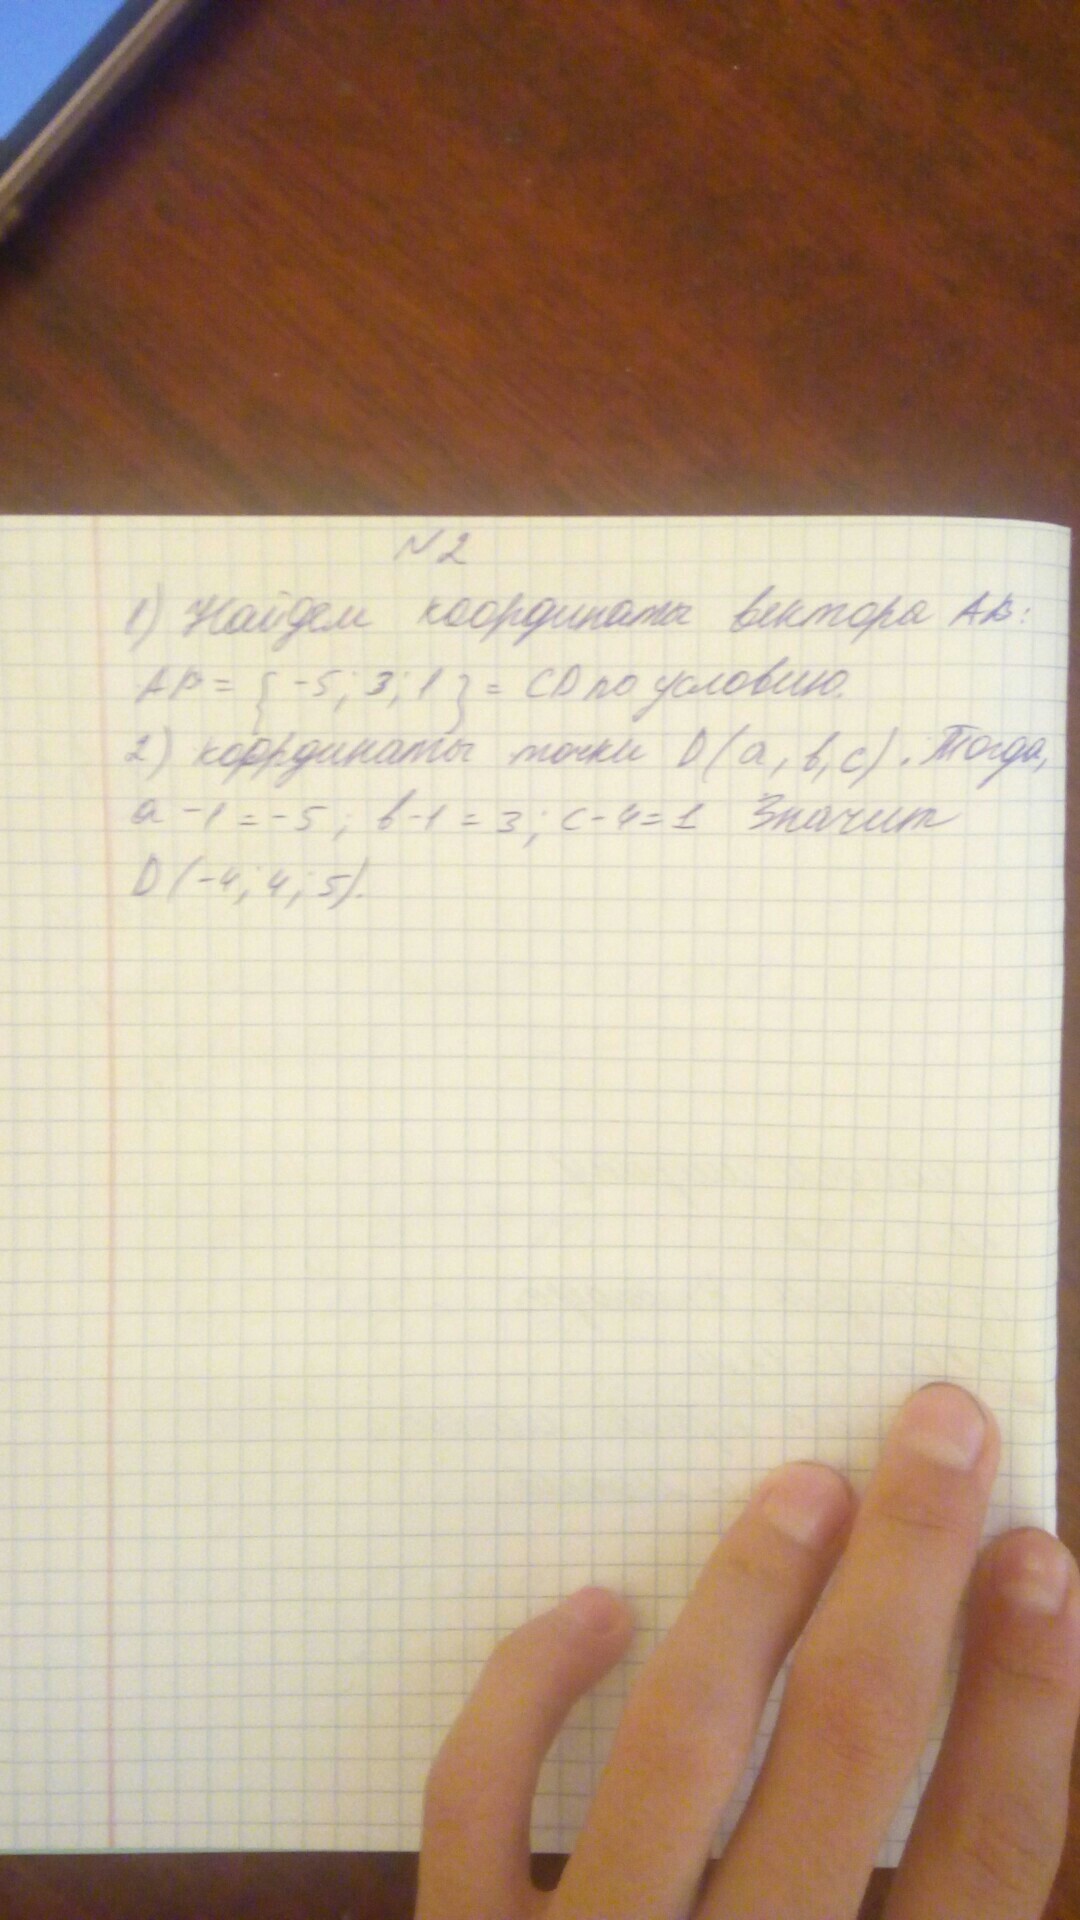 N2
1) Найдем координаты вектора AB:
AB = { -5; 3; 1 } = CD по условию.
2) координаты точки D(a, b, c). Тогда,
a - 1 = -5; b - 1 = 3; c - 4 = 1 Значит
D(-4; 4; 5).